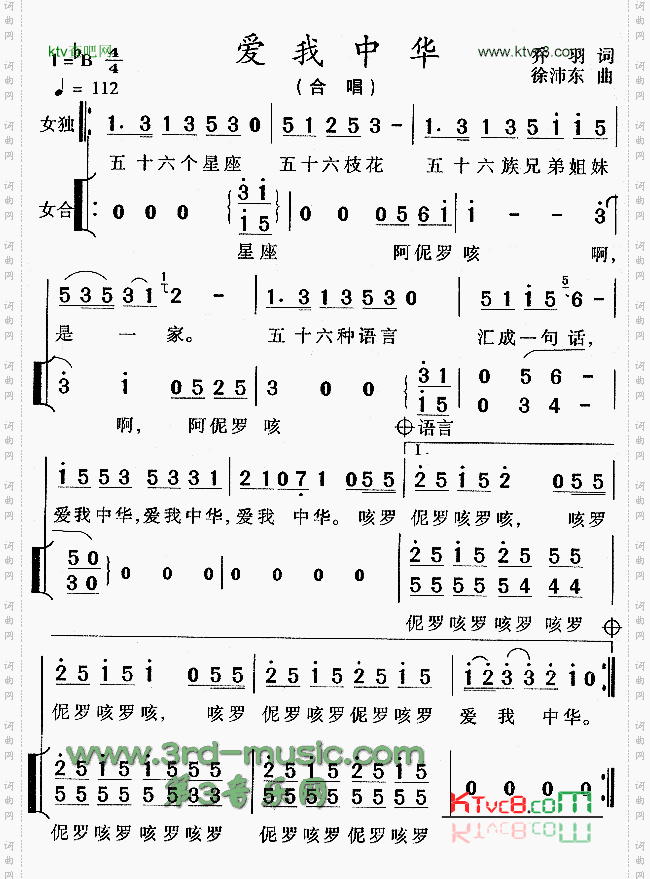 ktv酷吧网
爱我中华
www.ktvc8.com
1=♭B 4/4
乔羽 词
♩= 112
(合唱)
徐沛东 曲
女独 1. 3 1 3 5 3 0 | 5 1 2 5 3 - | 1. 3 1 3 5 1 1 5
五十六个星座 五十六枝花 五十六族兄弟姐妹
女合 0 0 0 3 1 | 0 0 0 5 6 1 | 1 - - 3
1 5
星座 阿伲罗咳 啊,
5 3 5 3 1 2 - | 1. 3 1 3 5 3 0 | 5 1 1 5 6 -
是一家。 五十六种语言 汇成一句话,
3 1 0 5 2 5 | 3 0 0 3 1 | 0 5 6 -
1 5 | 0 3 4 -
啊, 阿伲罗咳 语言
1.
1 5 5 3 5 3 3 1 | 2 1 0 7 1 0 5 5 | 2 5 1 5 2 0 5 5
爱我中华,爱我中华,爱我 中华。 咳罗 伲罗咳罗咳, 咳罗
5 0 0 0 0 | 0 0 0 0 | 2 5 1 5 2 5 5 5
3 0 | 5 5 5 5 5 4 4 4
伲罗咳罗咳罗咳罗
2 5 1 5 1 0 5 5 | 2 5 1 5 2 5 1 5 | 1 2 3 3 2 1 0
伲罗咳罗咳, 咳罗 伲罗咳罗伲罗咳罗 爱我 中华。
www.3rd-music.com
第3音乐网
2 5 1 5 1 5 5 5 | 2 5 1 5 2 5 1 5 | 0 0 0 0
5 5 5 5 5 5 3 3 | 5 5 5 5 5 5 5 5
KTvc8.com
伲罗咳罗咳罗咳罗 伲罗咳罗伲罗咳罗
词曲网